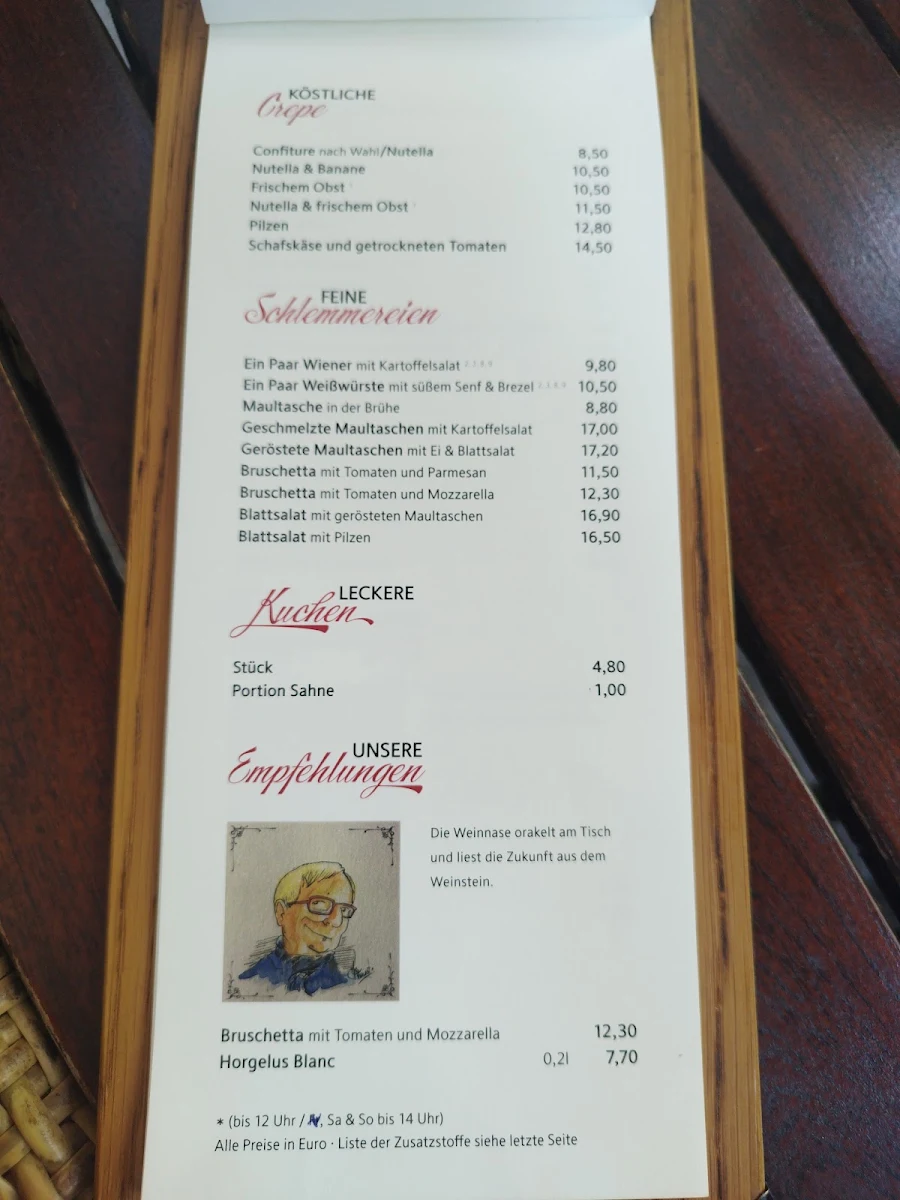 KÖSTLICHE
Crepe
Confiture nach Wahl/Nutella 8,50
Nutella & Banane 10,50
Frischem Obst 10,50
Nutella & frischem Obst 11,50
Pilzen 12,80
Schafskäse und getrockneten Tomaten 14,50
FEINE
Schlemmereien
Ein Paar Wiener mit Kartoffelsalat 9,80
Ein Paar Weißwürste mit süßem Senf & Brezel 10,50
Maultasche in der Brühe 8,80
Geschmelzte Maultaschen mit Kartoffelsalat 17,00
Geröstete Maultaschen mit Ei & Blattsalat 17,20
Bruschetta mit Tomaten und Parmesan 11,50
Bruschetta mit Tomaten und Mozzarella 12,30
Blattsalat mit gerösteten Maultaschen 16,90
Blattsalat mit Pilzen 16,50
LECKERE
Kuchen
Stück 4,80
Portion Sahne 1,00
UNSERE
Empfehlungen
Die Weinnase orakelt am Tisch
und liest die Zukunft aus dem
Weinstein.
Bruschetta mit Tomaten und Mozzarella 12,30
Horgelus Blanc 0,2l 7,70
* (bis 12 Uhr / , Sa & So bis 14 Uhr)
Alle Preise in Euro · Liste der Zusatzstoffe siehe letzte Seite